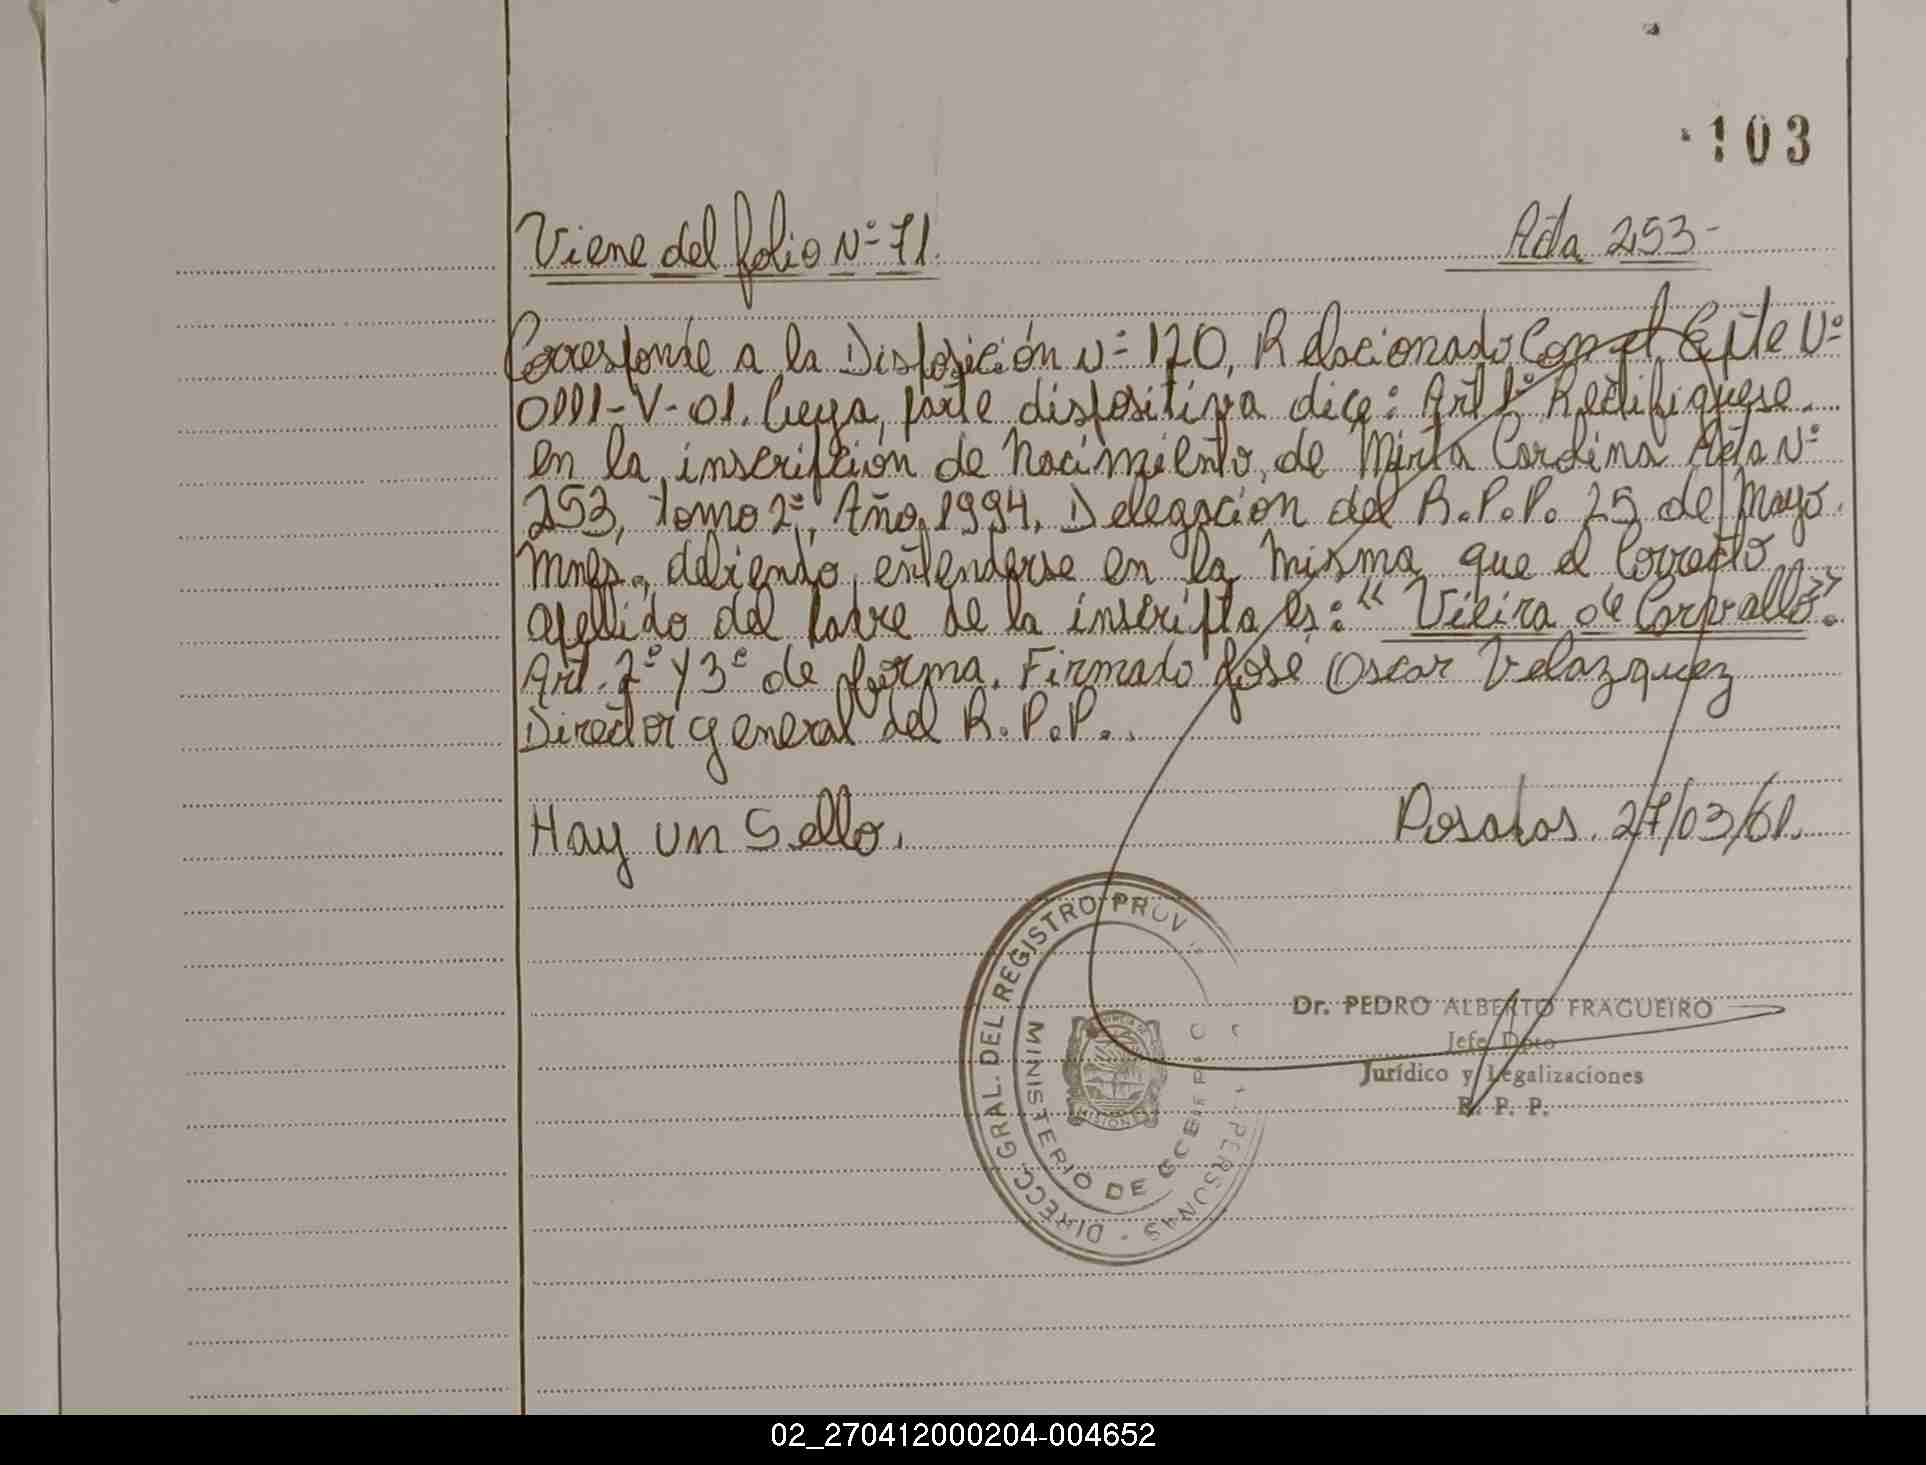 103
Viene del folio Nº 71. Acta 253-
Corresponde a la Disposición Nº 170, Relacionado Con el Expte Nº
0111-V-01. Cuya parte dispositiva dice: Art 1º Rectifiquese
en la inscripción de Nacimiento de Mirta Carolina Acta Nº
253, Tomo 2º, Año 1994, Delegación del R.P.P. 25 de Mayo
Mnes., debiendo entenderse en la misma que el Correcto
apellido del Padre de la inscripta es: "Vieira de Carvallo".
Art. 2º y 3º de forma. Firmado José Oscar Velazquez
Director general del R.P.P..
Hay un Sello. Posadas. 27/03/01.
DIRECC. GRAL. DEL REGISTRO PROV. PERSONAS
MINISTERIO DE
MISIONES
Dr. PEDRO ALBERTO FRAGUEIRO
Jefe Dpto
Jurídico y Legalizaciones
R. P. P.
02_270412000204-004652